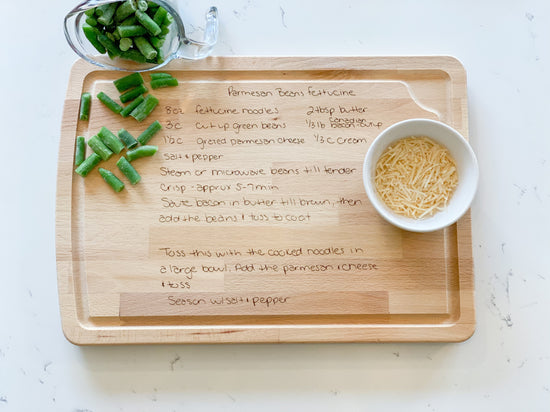 Parmesan Beans Fettucine
8oz fettucine noodles 2tbsp butter
3c cut up green beans 1/3 lb Canadian bacon-cut up
1/2c grated parmesan cheese 1/3 c cream
Salt + pepper
Steam or microwave beans till tender
crisp - approx 5-7 min
Saute bacon in butter till brown, then
add the beans & toss to coat
Toss this with the cooked noodles in
a large bowl. Add the parmesan + cheese
+ toss
Season w/salt + pepper